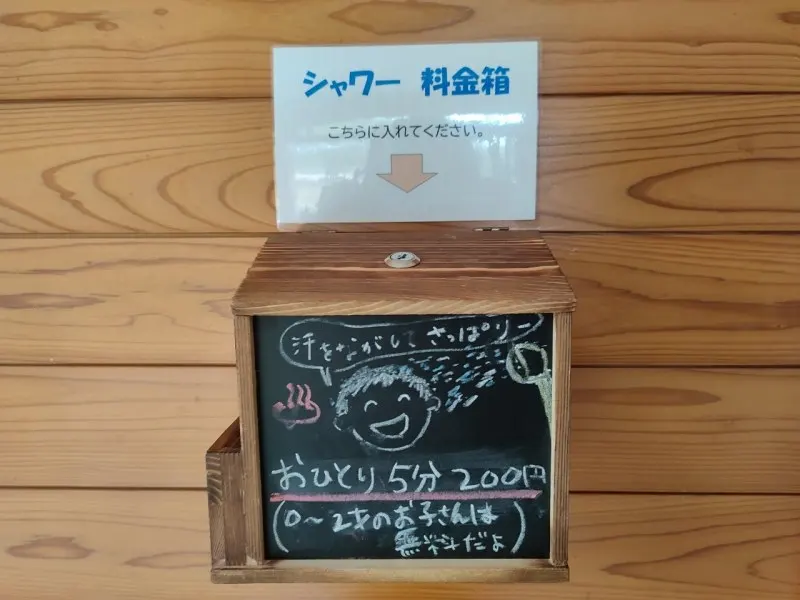 シャワー 料金箱
こちらに入れてください。
汗をながして さっぱりー
おひとり 5分 200円
(0～2才のお子さんは
無料だよ)